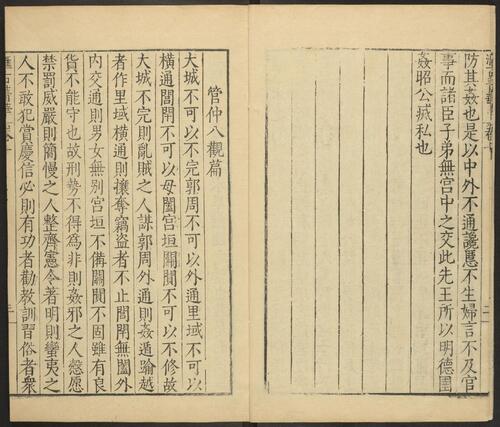 防其姦也是以中外不通讒慝不生婦言不及官
事而諸臣子弟無宮中之交此先王所以明德圉
姦昭公烕私也
管仲八觀篇
大城不可以不完郭周不可以外通里域不可以
橫通閭閈不可以毋闔宮垣關閉不可以不修故
大城不完則亂賊之人謀郭周外通則姦遁踰越
者作里域橫通則攘奪竊盜者不止閭閈無闔外
內交通則男女無別宮垣不備關閉不固雖有良
貨不能守也故刑勢不得為非則姦邪之人慤愿
禁罰威嚴則簡慢之人整齊憲令著明則蠻夷之
人不敢犯賞慶信必則有功者勸教訓習俗者衆